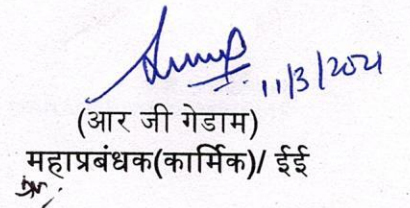 11/3/2021
(आर जी गेडाम)
महाप्रबंधक(कार्मिक)/ ईई